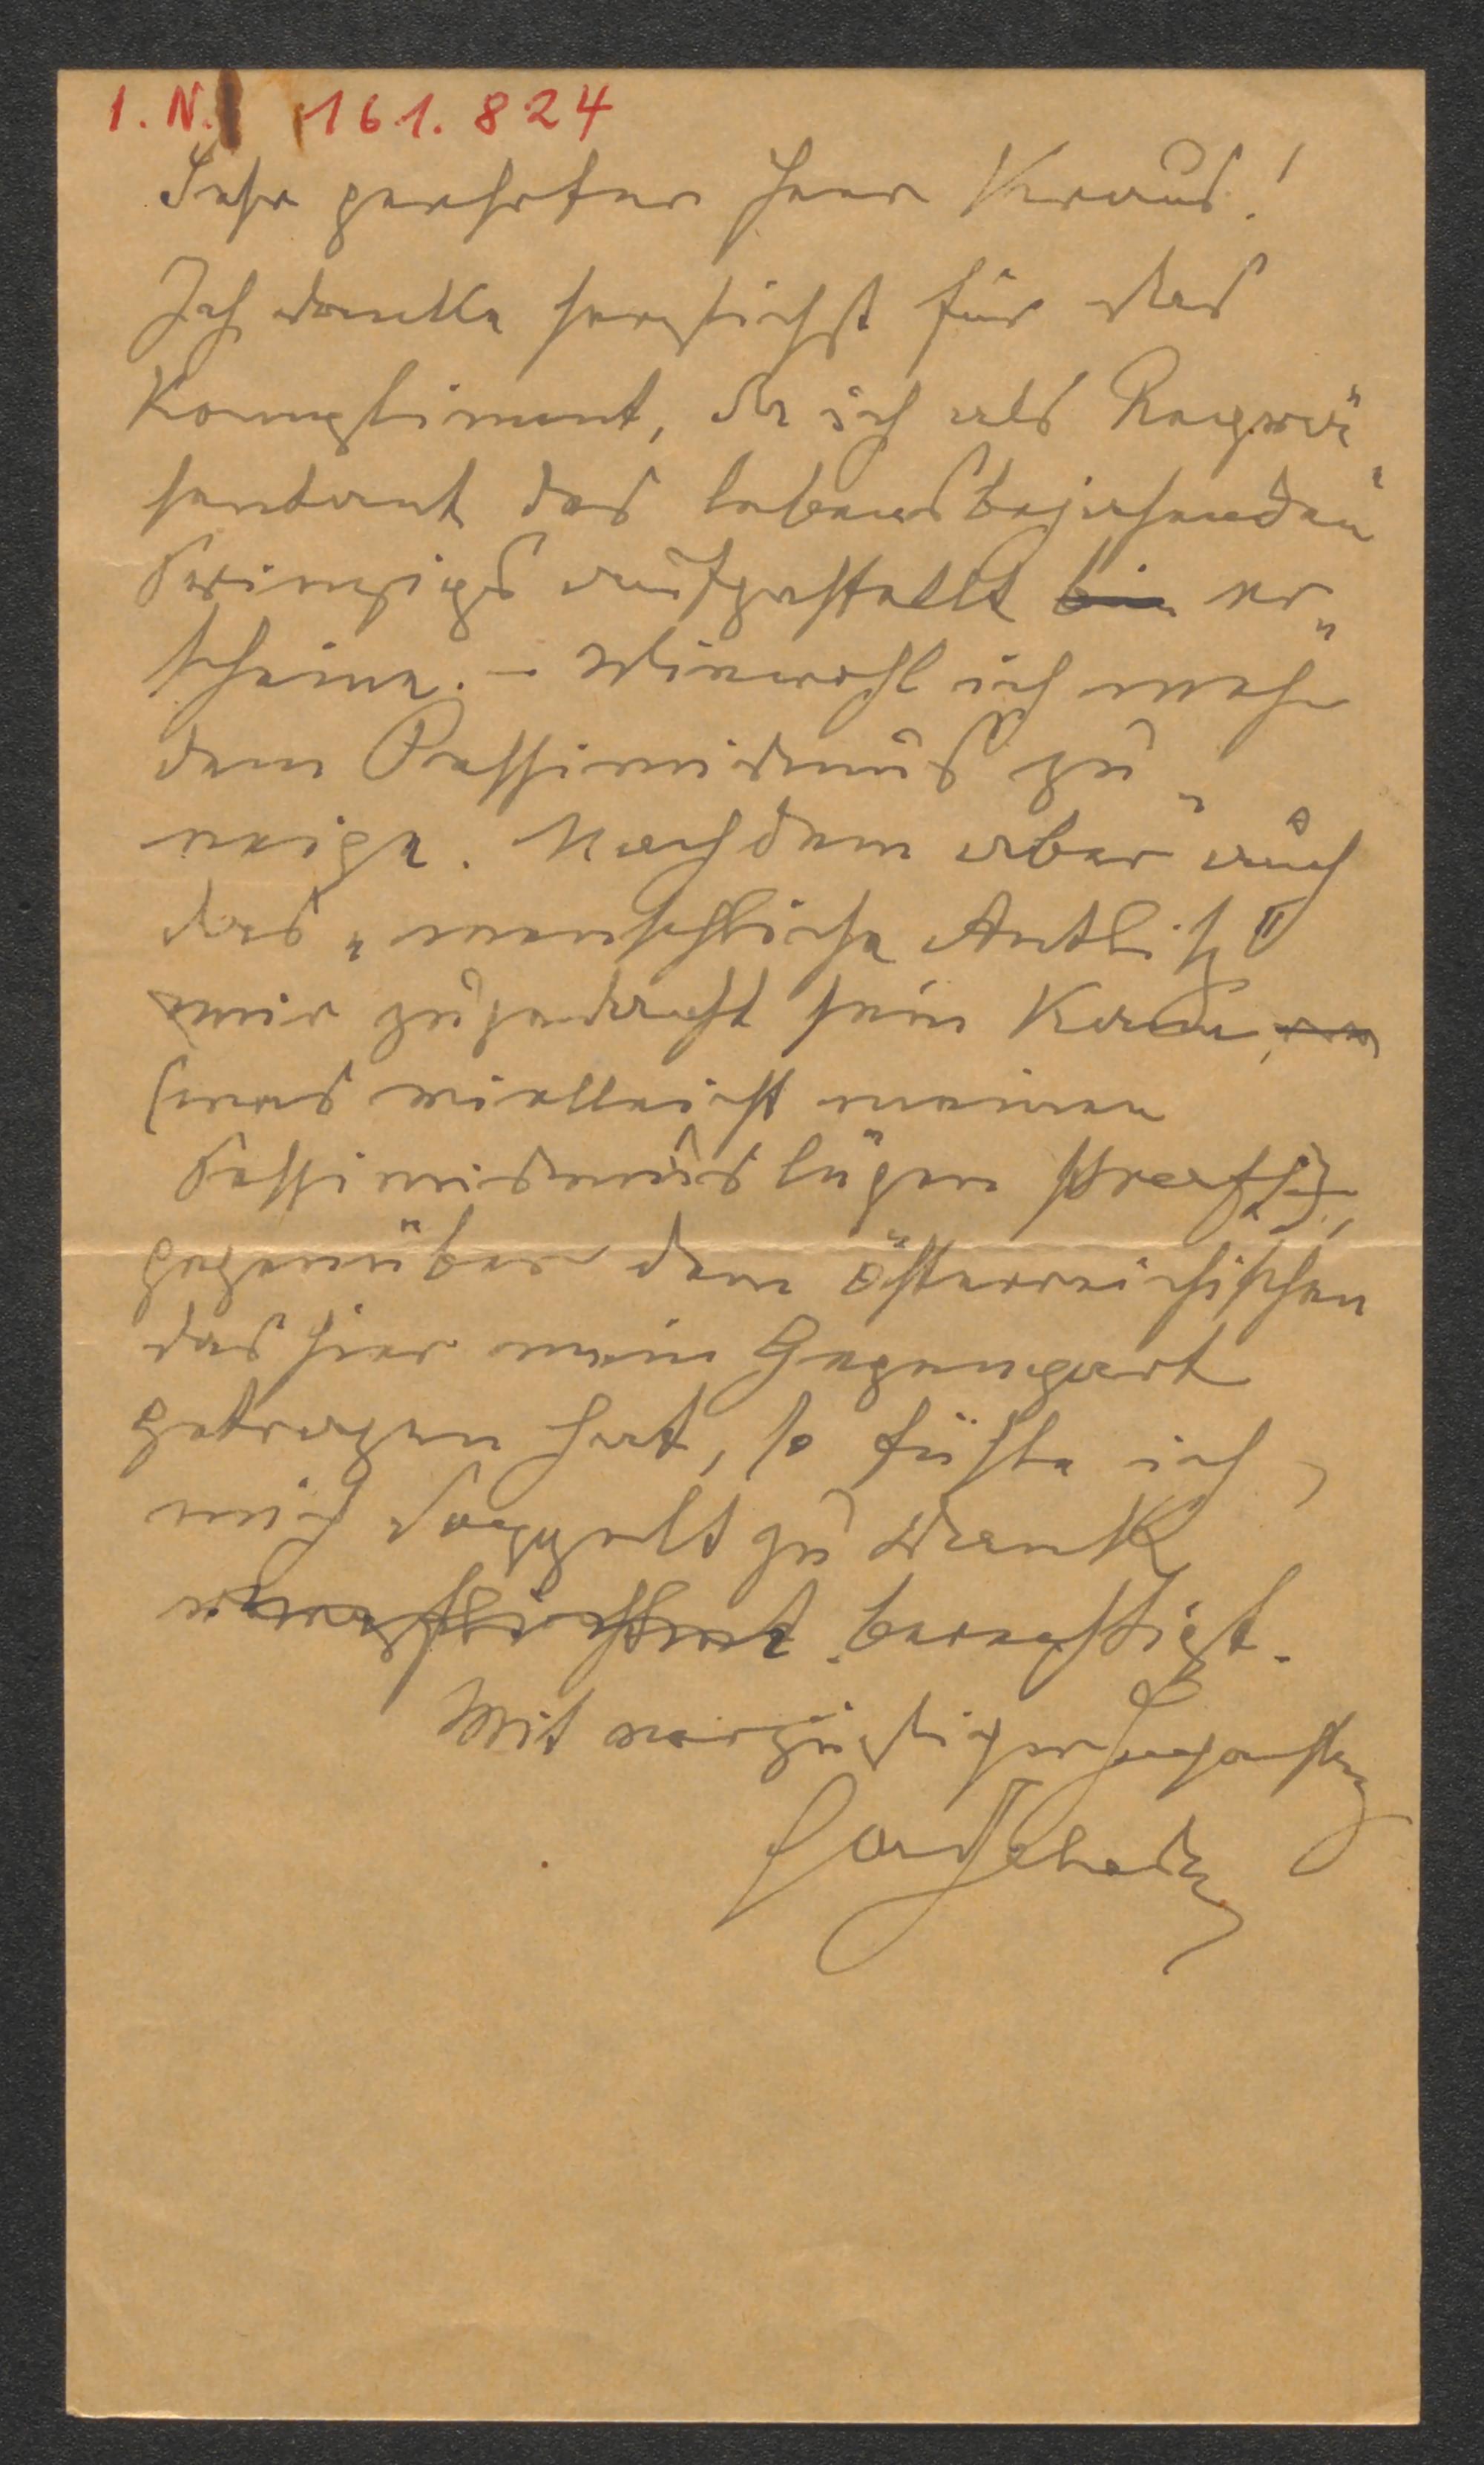 I. N. 161.824
Sehr geehrter Herr Kraus!
Ich danke herzlichst für das
Kompliment, da ich als Reprä„
sentant des lebensbejahenden
Prinzips aufgestellt bin er„
scheine. – Wiewohl ich mehr
dem Pessimismus zu„
neige. Nachdem aber auch
das „menschliche Antlitz"
mir zugedacht sein kann,
(was vielleicht meinen
Pessimismus lügen straft),
gegenüber dem österreichischen
das hier mein Gegenpart
getragen hat, so fühle ich
mich doppelt zu Dank
verpflichtet berechtigt.
Mit vorzüglicher Hochachtg